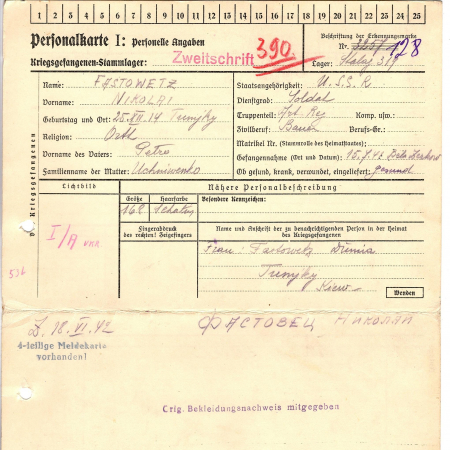 1 2 3 4 5 6 7 8 9 10 11 12 13 14 15 16 17 18 19 20 21 22 23 24 25
Personalkarte I: Personelle Angaben
Kriegsgefangenen-Stammlager: Zweitschrift 390.
Beschriftung der Erkennungsmarke
Nr. 128
Lager: Stalag
Name: FASTOWETZ
Vorname: NIKOLAI
Geburtstag und Ort: 25.XII.14
Religion: Orth
Vorname des Vaters: Petro
Familienname der Mutter:
Staatsangehörigkeit: U.S.S.R
Dienstgrad: Soldat
Truppenteil: Komp. usw.:
Zivilberuf: Bauer Berufs-Gr.:
Matrikel Nr. (Stammrolle des Heimatstaates):
Gefangennahme (Ort und Datum):
Ob gesund, krank, verwundet, eingeliefert: gesund
Lichtbild
Nähere Personalbeschreibung
Größe Haarfarbe Besondere Kennzeichen:
168
Fingerabdruck
des rechten! Zeigefingers
Name und Anschrift der zu benachrichtigenden Person in der Heimat
des Kriegsgefangenen
Frau
Kiew
Wenden
I/A
Z. 18. VI. 42
ФАСТОВЕЦ НИКОЛАЙ
4-teilige Meldekarte
vorhanden!
Orig. Bekleidungsnachweis mitgegeben